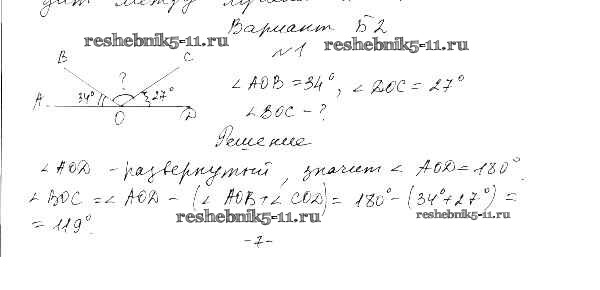 дит между лучами
Вариант Б2
reshebnik5-11.ru
№1
reshebnik5-11.ru
B
C
?
∠AOB = 34°, ∠DOC = 27°
A
34°
27°
O
D
∠BOC - ?
Решение
∠AOD - развернутый, значит ∠ AOD = 180°.
∠BOC = ∠AOD - (∠ AOB + ∠ COD) = 180° - (34° + 27°) =
= 119°.
reshebnik5-11.ru
reshebnik5-11.ru
-7-